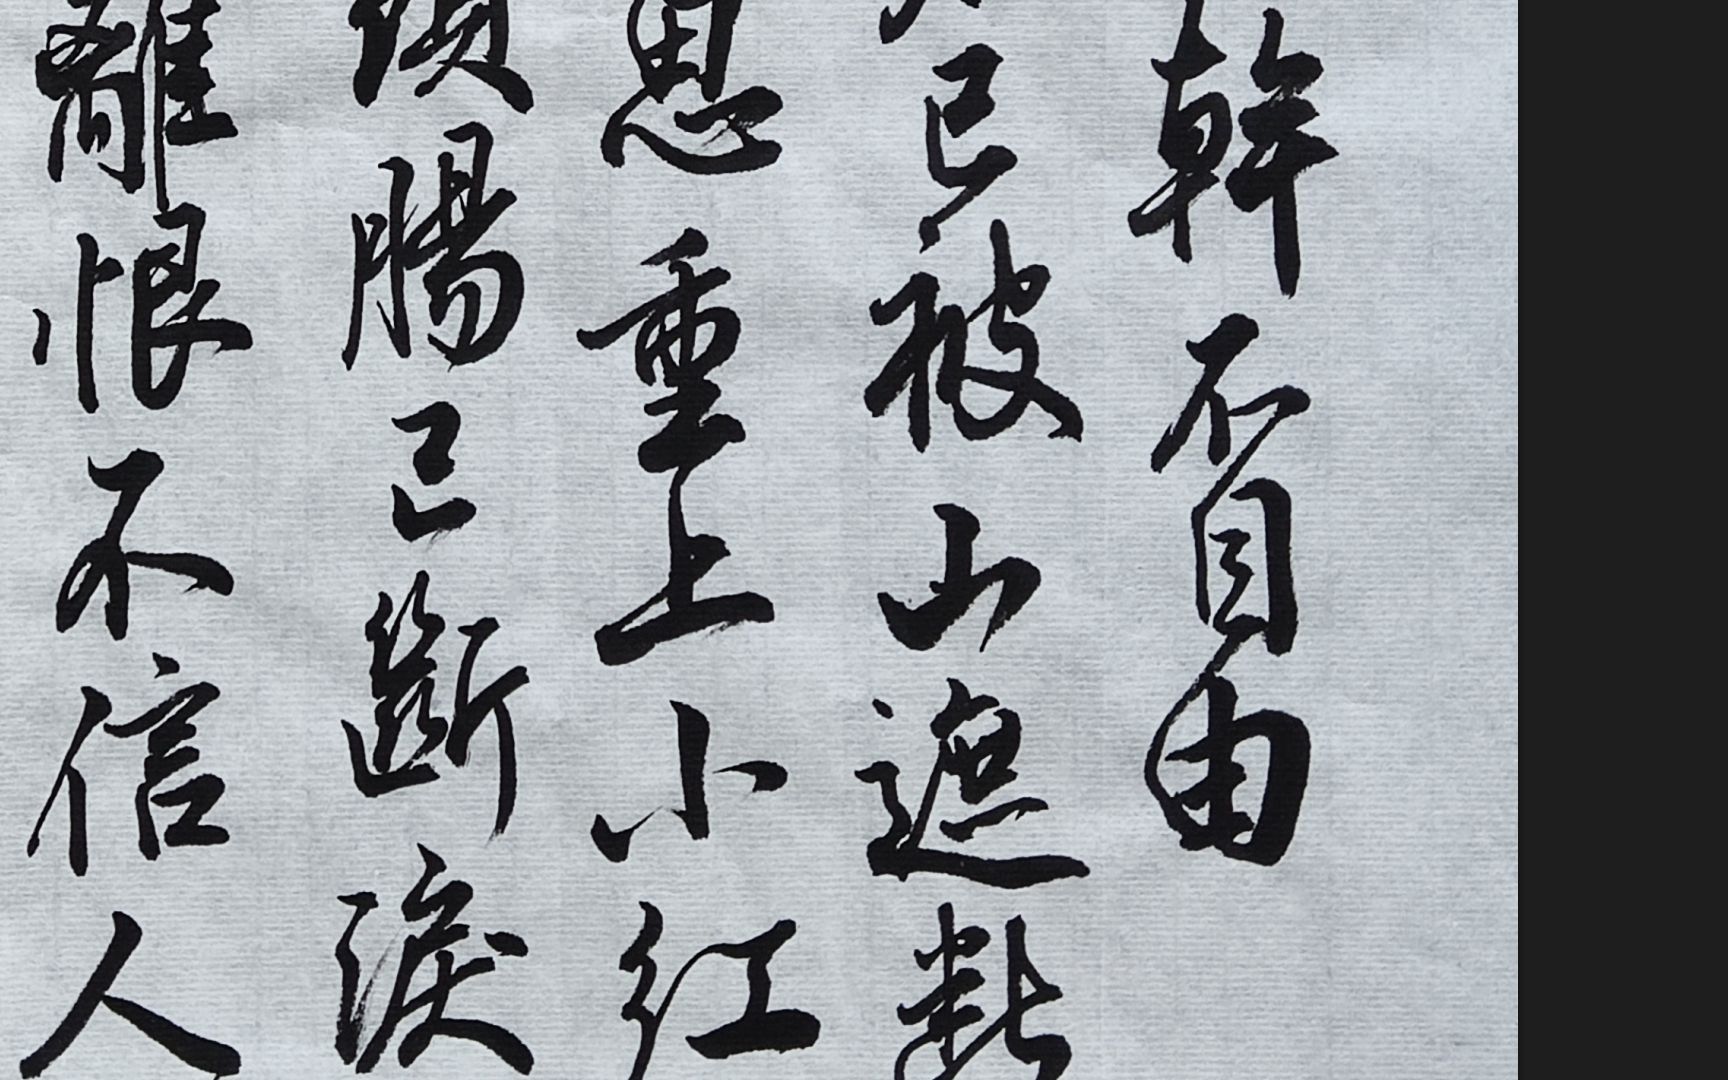 幹不自由
已被山遮断
思重上小红
腸已斷淚
離恨不信人